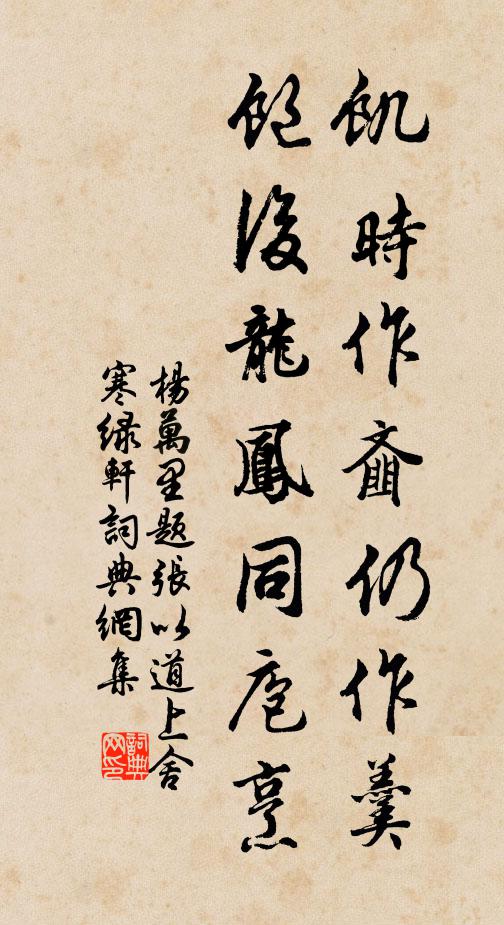 飢時作齏仍作羹
飽後龍鳳同庖烹
楊萬里題張以道上舍
寒綠軒詞典網集
詞典網印